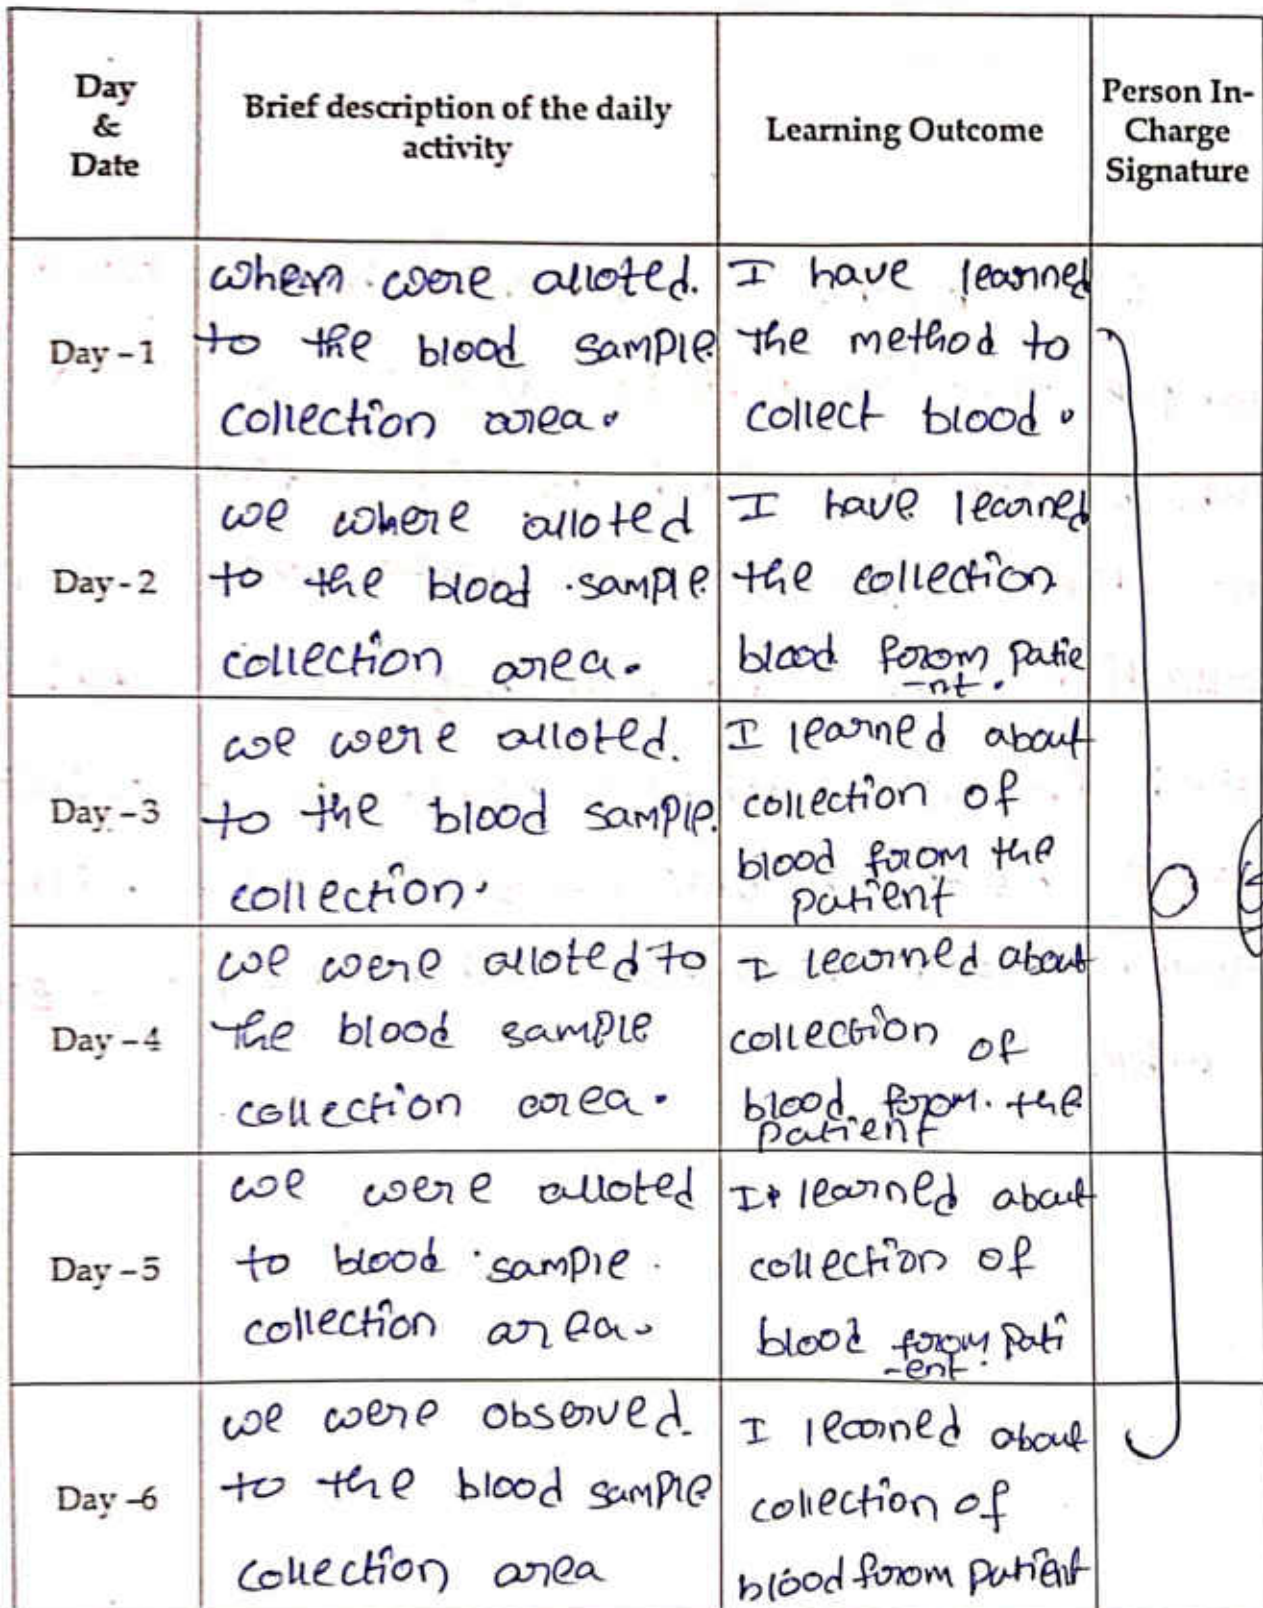 Day
&
Date
Brief description of the daily
activity
Learning Outcome
Person In-
Charge
Signature
Day - 1
when were alloted.
to the blood sample
collection area.
I have learned
the method to
collect blood.
Day - 2
we where alloted
to the blood sample
collection area.
I have learned
the collection
blood from patie
-nt.
Day - 3
we were alloted.
to the blood sample.
collection.
I learned about
collection of
blood from the
patient
Day - 4
we were alloted to
the blood sample
collection area.
I learned about
collection of
blood from. the
patient
Day - 5
we were alloted
to blood sample.
collection area.
I learned about
collection of
blood from pati
-ent.
Day -6
we were observed.
to the blood sample
collection area
I learned about
collection of
blood from patient